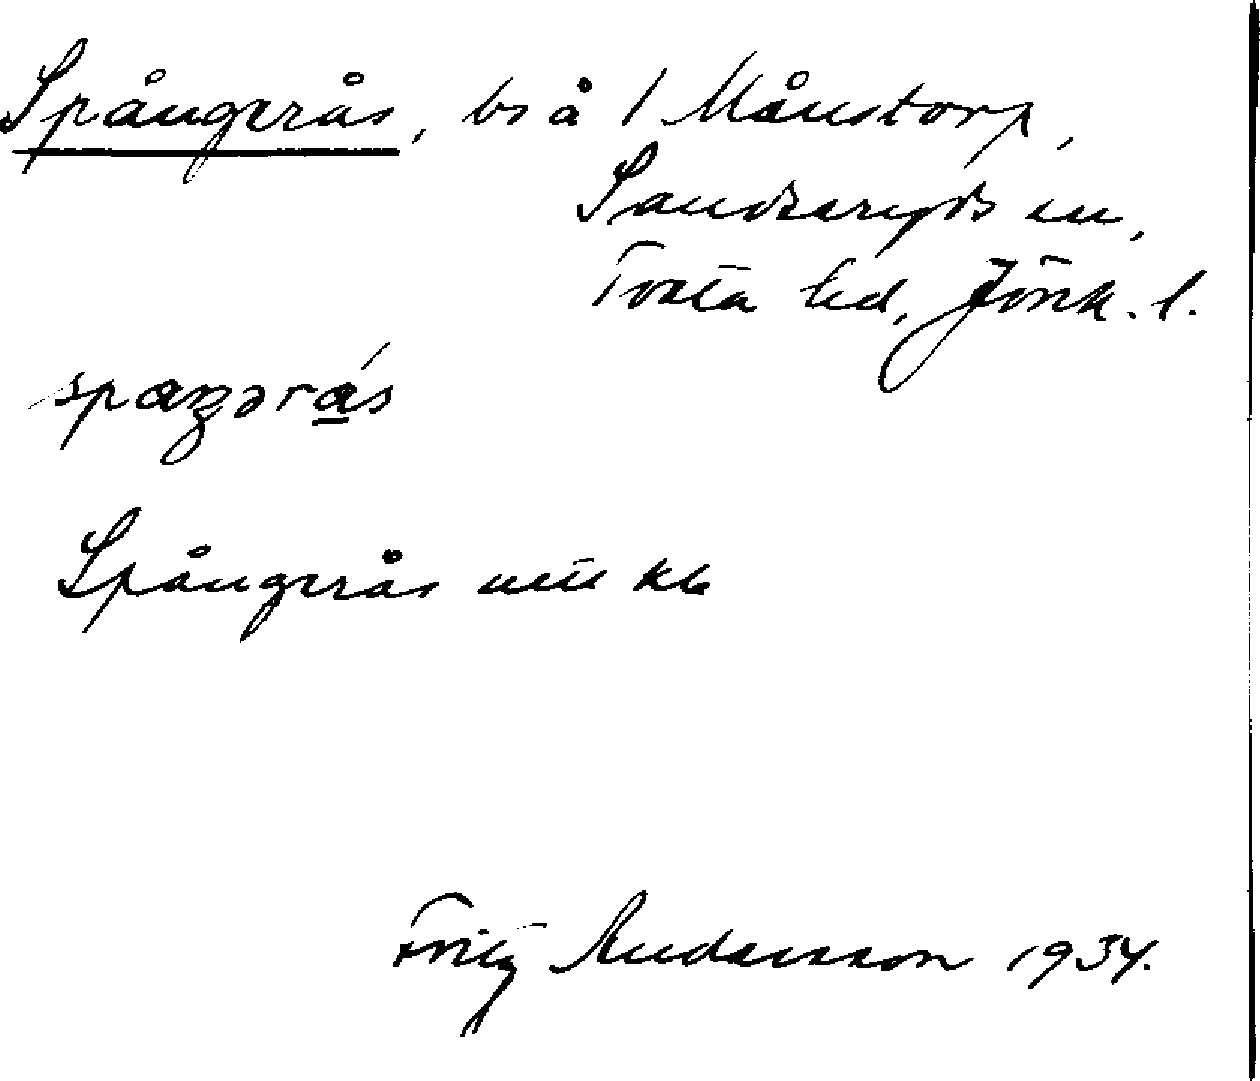 Spångerås, bs å 1 Månstorp,
Sandseryds sn,
Tveta hd, Jönk. l.
spaŋərås
Spångerås
Fritz Andersson 1934.